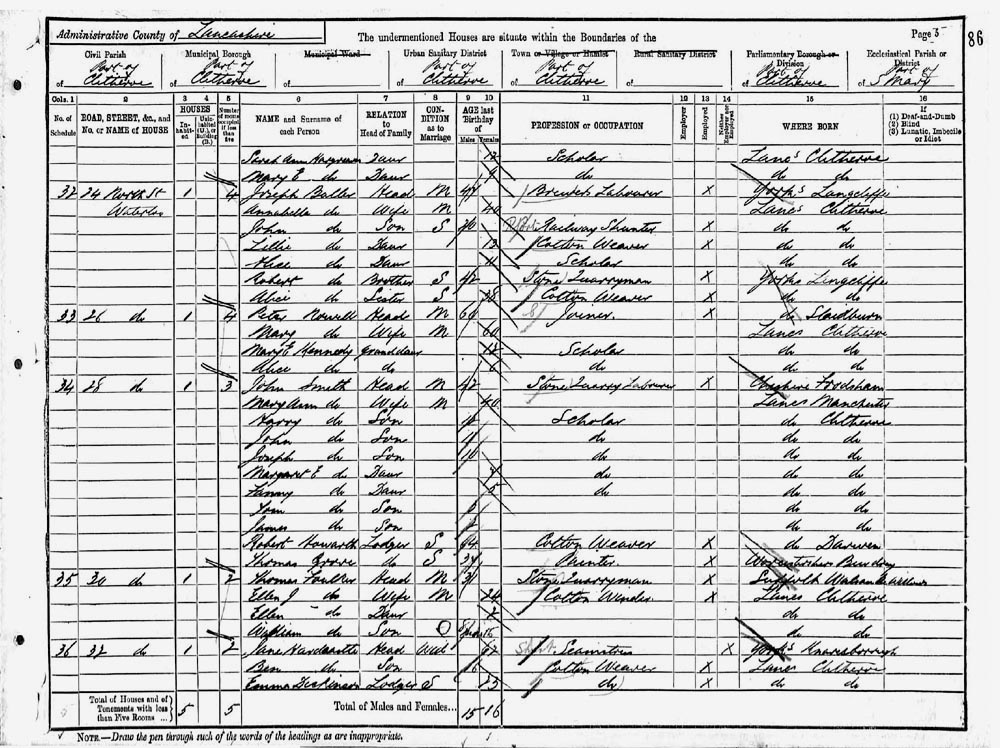 Administrative County of Lancashire
The undermentioned Houses are situate within the Boundaries of the
Page 5
86
Civil Parish Municipal Borough Municipal Ward Urban Sanitary District Town or Village or Hamlet Rural Sanitary District Parliamentary Borough or Division Ecclesiastical Parish or District
of Part of Clitheroe of Part of Clitheroe of of Part of Clitheroe of Part of Clitheroe of of Part of Clitheroe of Part of S Mary
Cols. 1 2 3 4 5 6 7 8 9 10 11 12 13 14 15 16
No. of Schedule ROAD, STREET, &c., and No. or NAME of HOUSE HOUSES Inhabited Uninhabited (U.), or Building (B.) Number of rooms occupied if less than five NAME and Surname of each Person RELATION to Head of Family CONDITION as to Marriage AGE last Birthday of Males Females PROFESSION or OCCUPATION Employer Employed Neither Employer nor Employed WHERE BORN If (1) Deaf-and-Dumb (2) Blind (3) Lunatic, Imbecile or Idiot
Sarah Ann Daur 12 Scholar Lancs Clitheroe
Mary E do Daur 9 do do do
32 24 North St 1 4 Joseph Head M 47 Labourer X Yorks Langcliffe
Waterloo Annabella do Wife M 40 Lancs Clitheroe
John do Son S 20 Railway Shunter X do do
Lillie do Daur 13 Cotton Weaver X do do
Alice do Daur 11 Scholar do do
Robert do Brother S 42 Stone Quarryman X Yorks Langcliffe
Alice do Sister S 38 Cotton Weaver X do do
33 26 do 1 4 Peter Nowell Head M 60 Joiner X do Slaidburn
Mary do Wife M 60 Lancs Clitheroe
Mary E Kennedy Granddaur 12 Scholar do do
Alice do do 6 do do
34 28 do 1 3 John Smith Head M 42 Stone Quarry Labourer X Cheshire Frodsham
Mary Ann do Wife M 40 Lancs Manchester
Harry do Son Scholar do Clitheroe
John do Son 11 do do do
Joseph do Son 10 do do do
Margaret E do Daur 7 do do do
Fanny do Daur 5 do do do
Tom do Son do do
James do Son do do
Robert Howarth Lodger S 64 Cotton Weaver X do Darwen
Thomas Grove do S 24 X
35 30 do 1 2 Thomas Faulker Head M 31 Stone Quarryman X Suffolk
Ellen J do Wife M 24 Cotton Winder X Lancs Clitheroe
Ellen do Daur 2 do do
William do Son do do
36 32 do 1 2 Jane Hardcastle Head Wid 62 X Yorks Knaresborough
Ben do Son Cotton Weaver X Lancs Clitheroe
Emma Dickinson Lodger S 23 do X do do
Total of Houses and of Tenements with less than Five Rooms ... 5 5 Total of Males and Females... 15 16
NOTE.—Draw the pen through such of the words of the headings as are inappropriate.